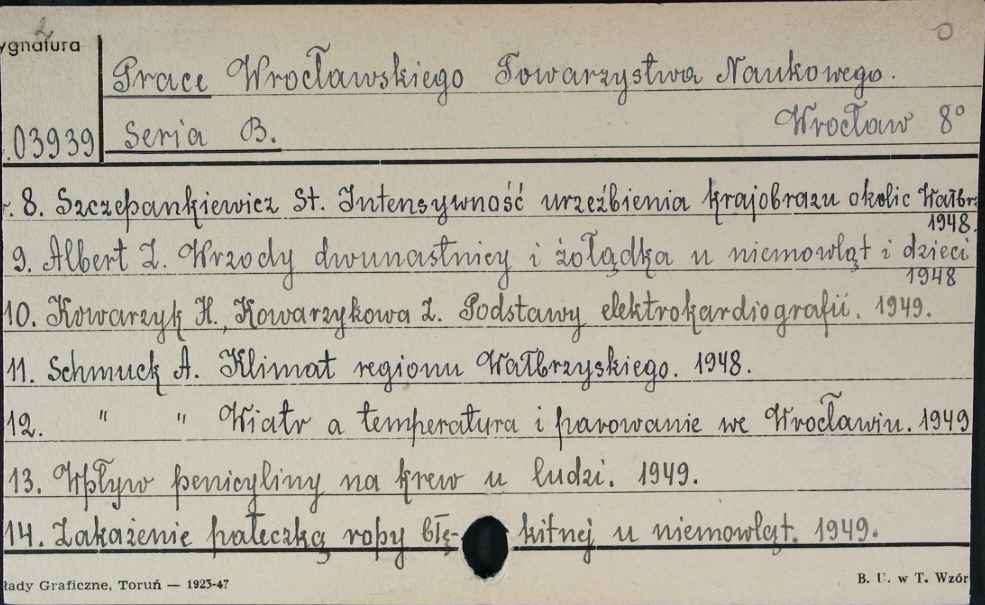 ygnatura
Prace Wrocławskiego Towarzystwa Naukowego.
.03939 Seria B. Wrocław 8°
r. 8. Szczepankiewicz St. Intensywność urzeźbienia krajobrazu okolic Wałbr.
1948.
9. Albert Z. Wrzody dwunastnicy i żołądka u niemowląt i dzieci
1948
10. Kowarzyk H., Kowarzykowa Z. Podstawy elektrokardiografii. 1949.
11. Schmuck A. Klimat regionu Wałbrzyskiego. 1948.
12. " " Wiatr a temperatura i parowanie we Wrocławiu. 1949
13. Wpływ penicyliny na krew u ludzi. 1949.
14. Zakażenie pałeczką ropy błę- kitnej u niemowląt. 1949.
łady Graficzne, Toruń — 1923-47 B. U. w T. Wzór